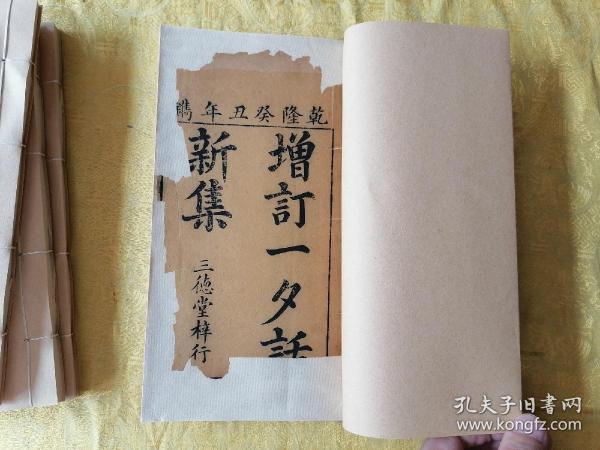 乾隆癸丑年鐫
增訂一夕話
新集
三德堂梓行
孔夫子旧書网
www.kongfz.com